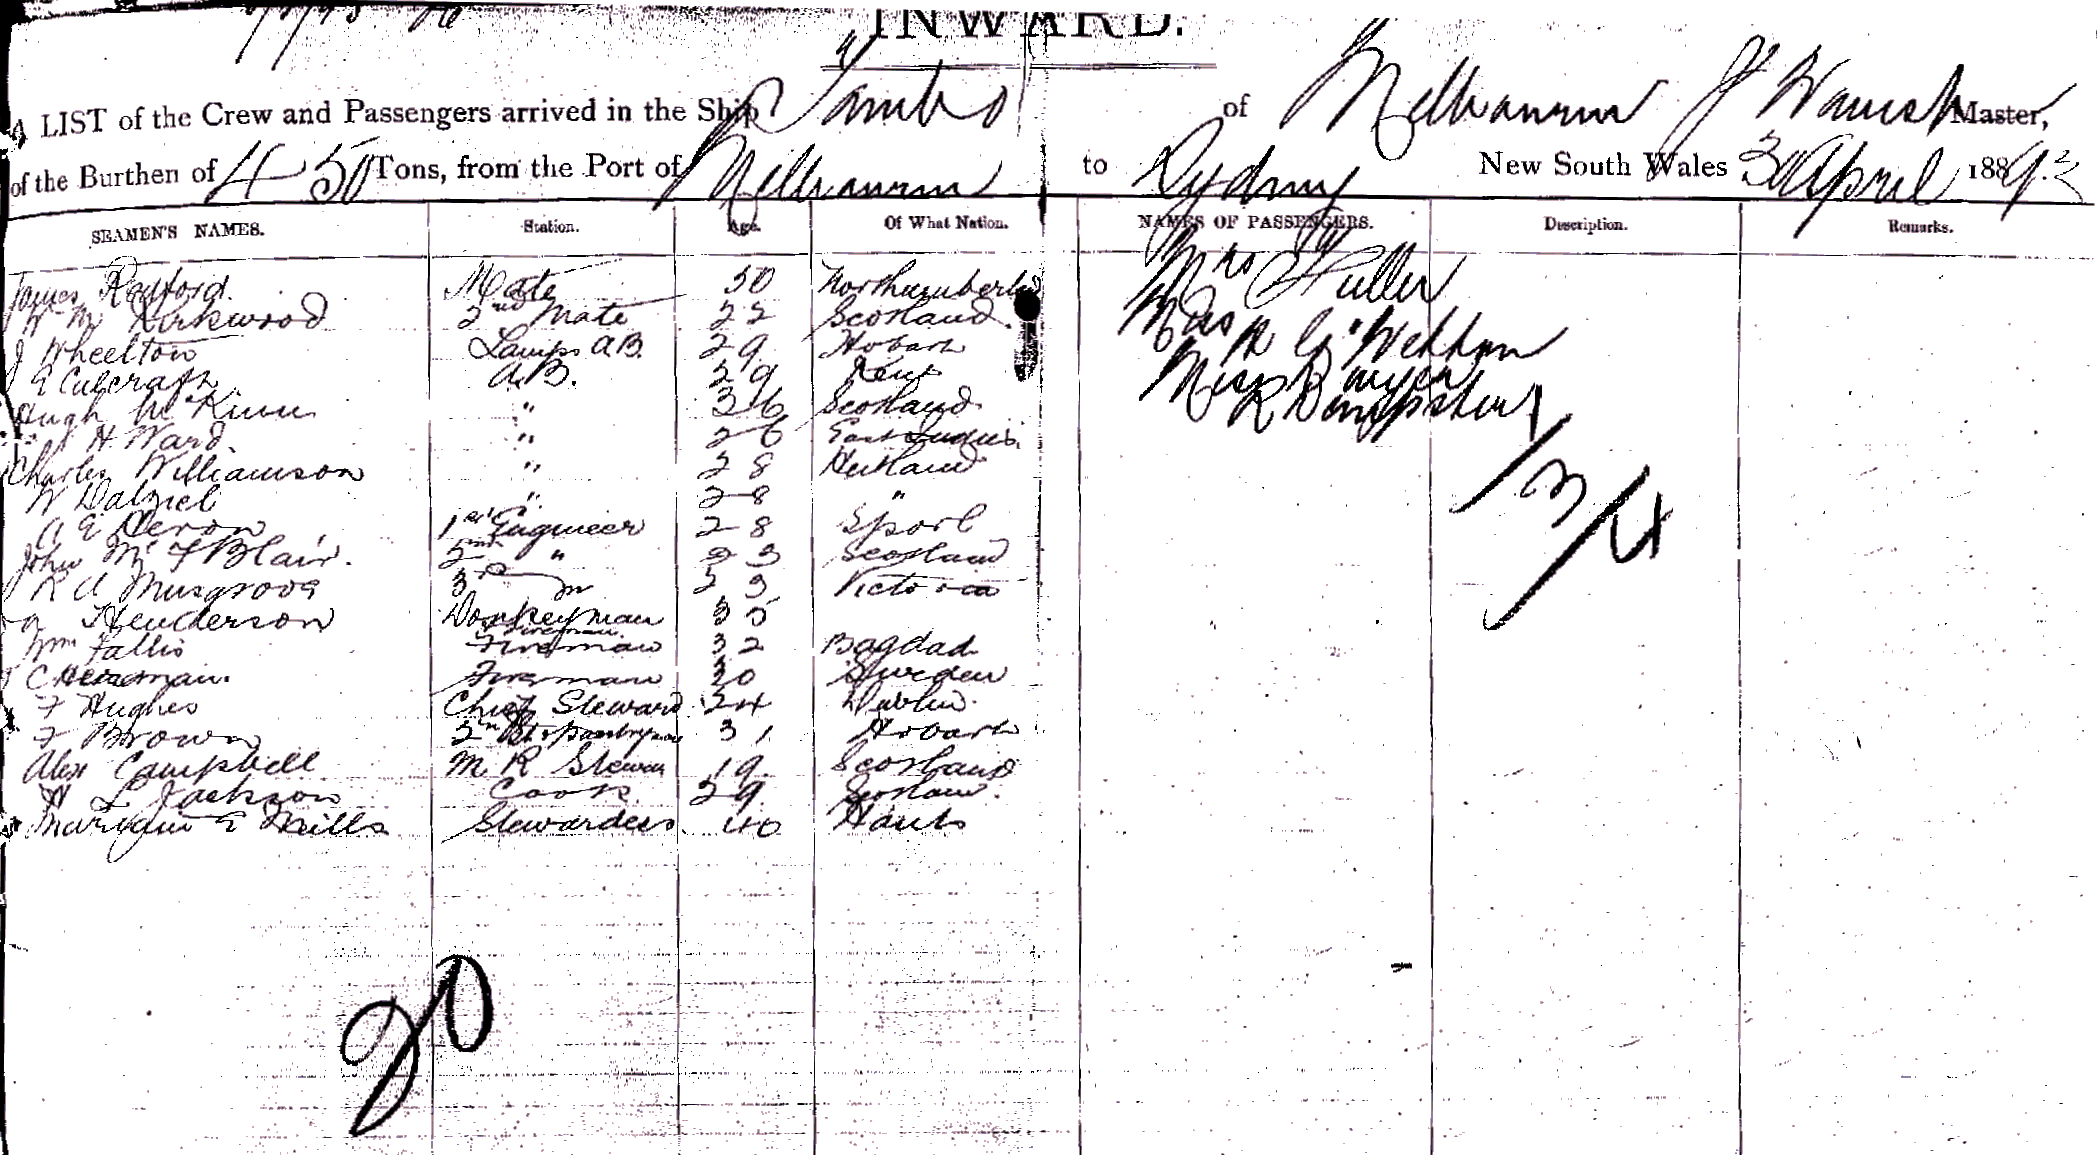 INWARD.
A LIST of the Crew and Passengers arrived in the Ship Tambo of Melbourne J Hamish Master,
of the Burthen of 450 Tons, from the Port of Melbourne to Sydney New South Wales 30 April 1889.2
SEAMEN'S NAMES. Station. Age. Of What Nation. NAMES OF PASSENGERS. Description. Remarks.
James Rexford. Mate 50 Northumberld Mrs Fuller
Kirkwood 2nd Mate 22 Scotland
J Wheelton Lamps A.B. 29 Hobart
E Culcraft A.B. 29 Kent Miss
Hugh McKinn " 36 Scotland R Dempster
H Ward. " 26 East Indies.
Charles Williamson " 28
W Dalziel " 28 "
A E Heron 1st Engineer 28
John Mc F Blair. 2nd " 23 Scotland
R A Musgrove 3rd 23 Victoria
Henderson Donkeyman 35
Wm Fallis Fireman 32 Bagdad
C Fireman 20 Sweden
F Hughes Chief Steward 24 Dublin.
F Brown 2nd 31 Hobart
Alex Campbell M R Stewar 19 Scotland
H L Jackson Cook 29
E Mills Stewardess 40 Hants
20